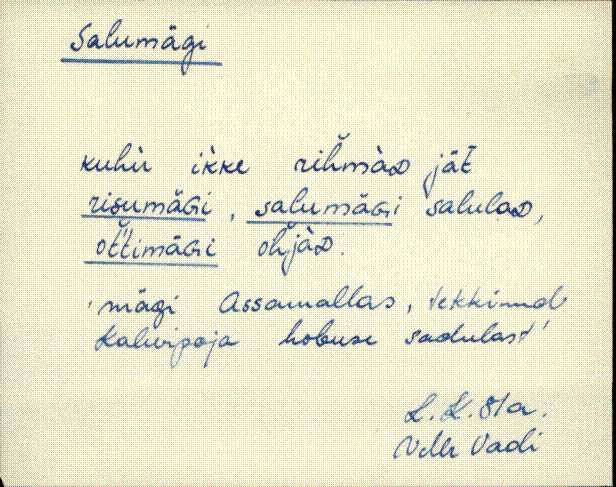 Salumägi
kuhù ikke rihmàD jät
risumäGi, salumäGi salulaD,
ottimäGi ohjàD.
'mägi Assamallas, tekkinud
Kalevipoja hobuse sadulast'
L. K. 81a.
Vadi